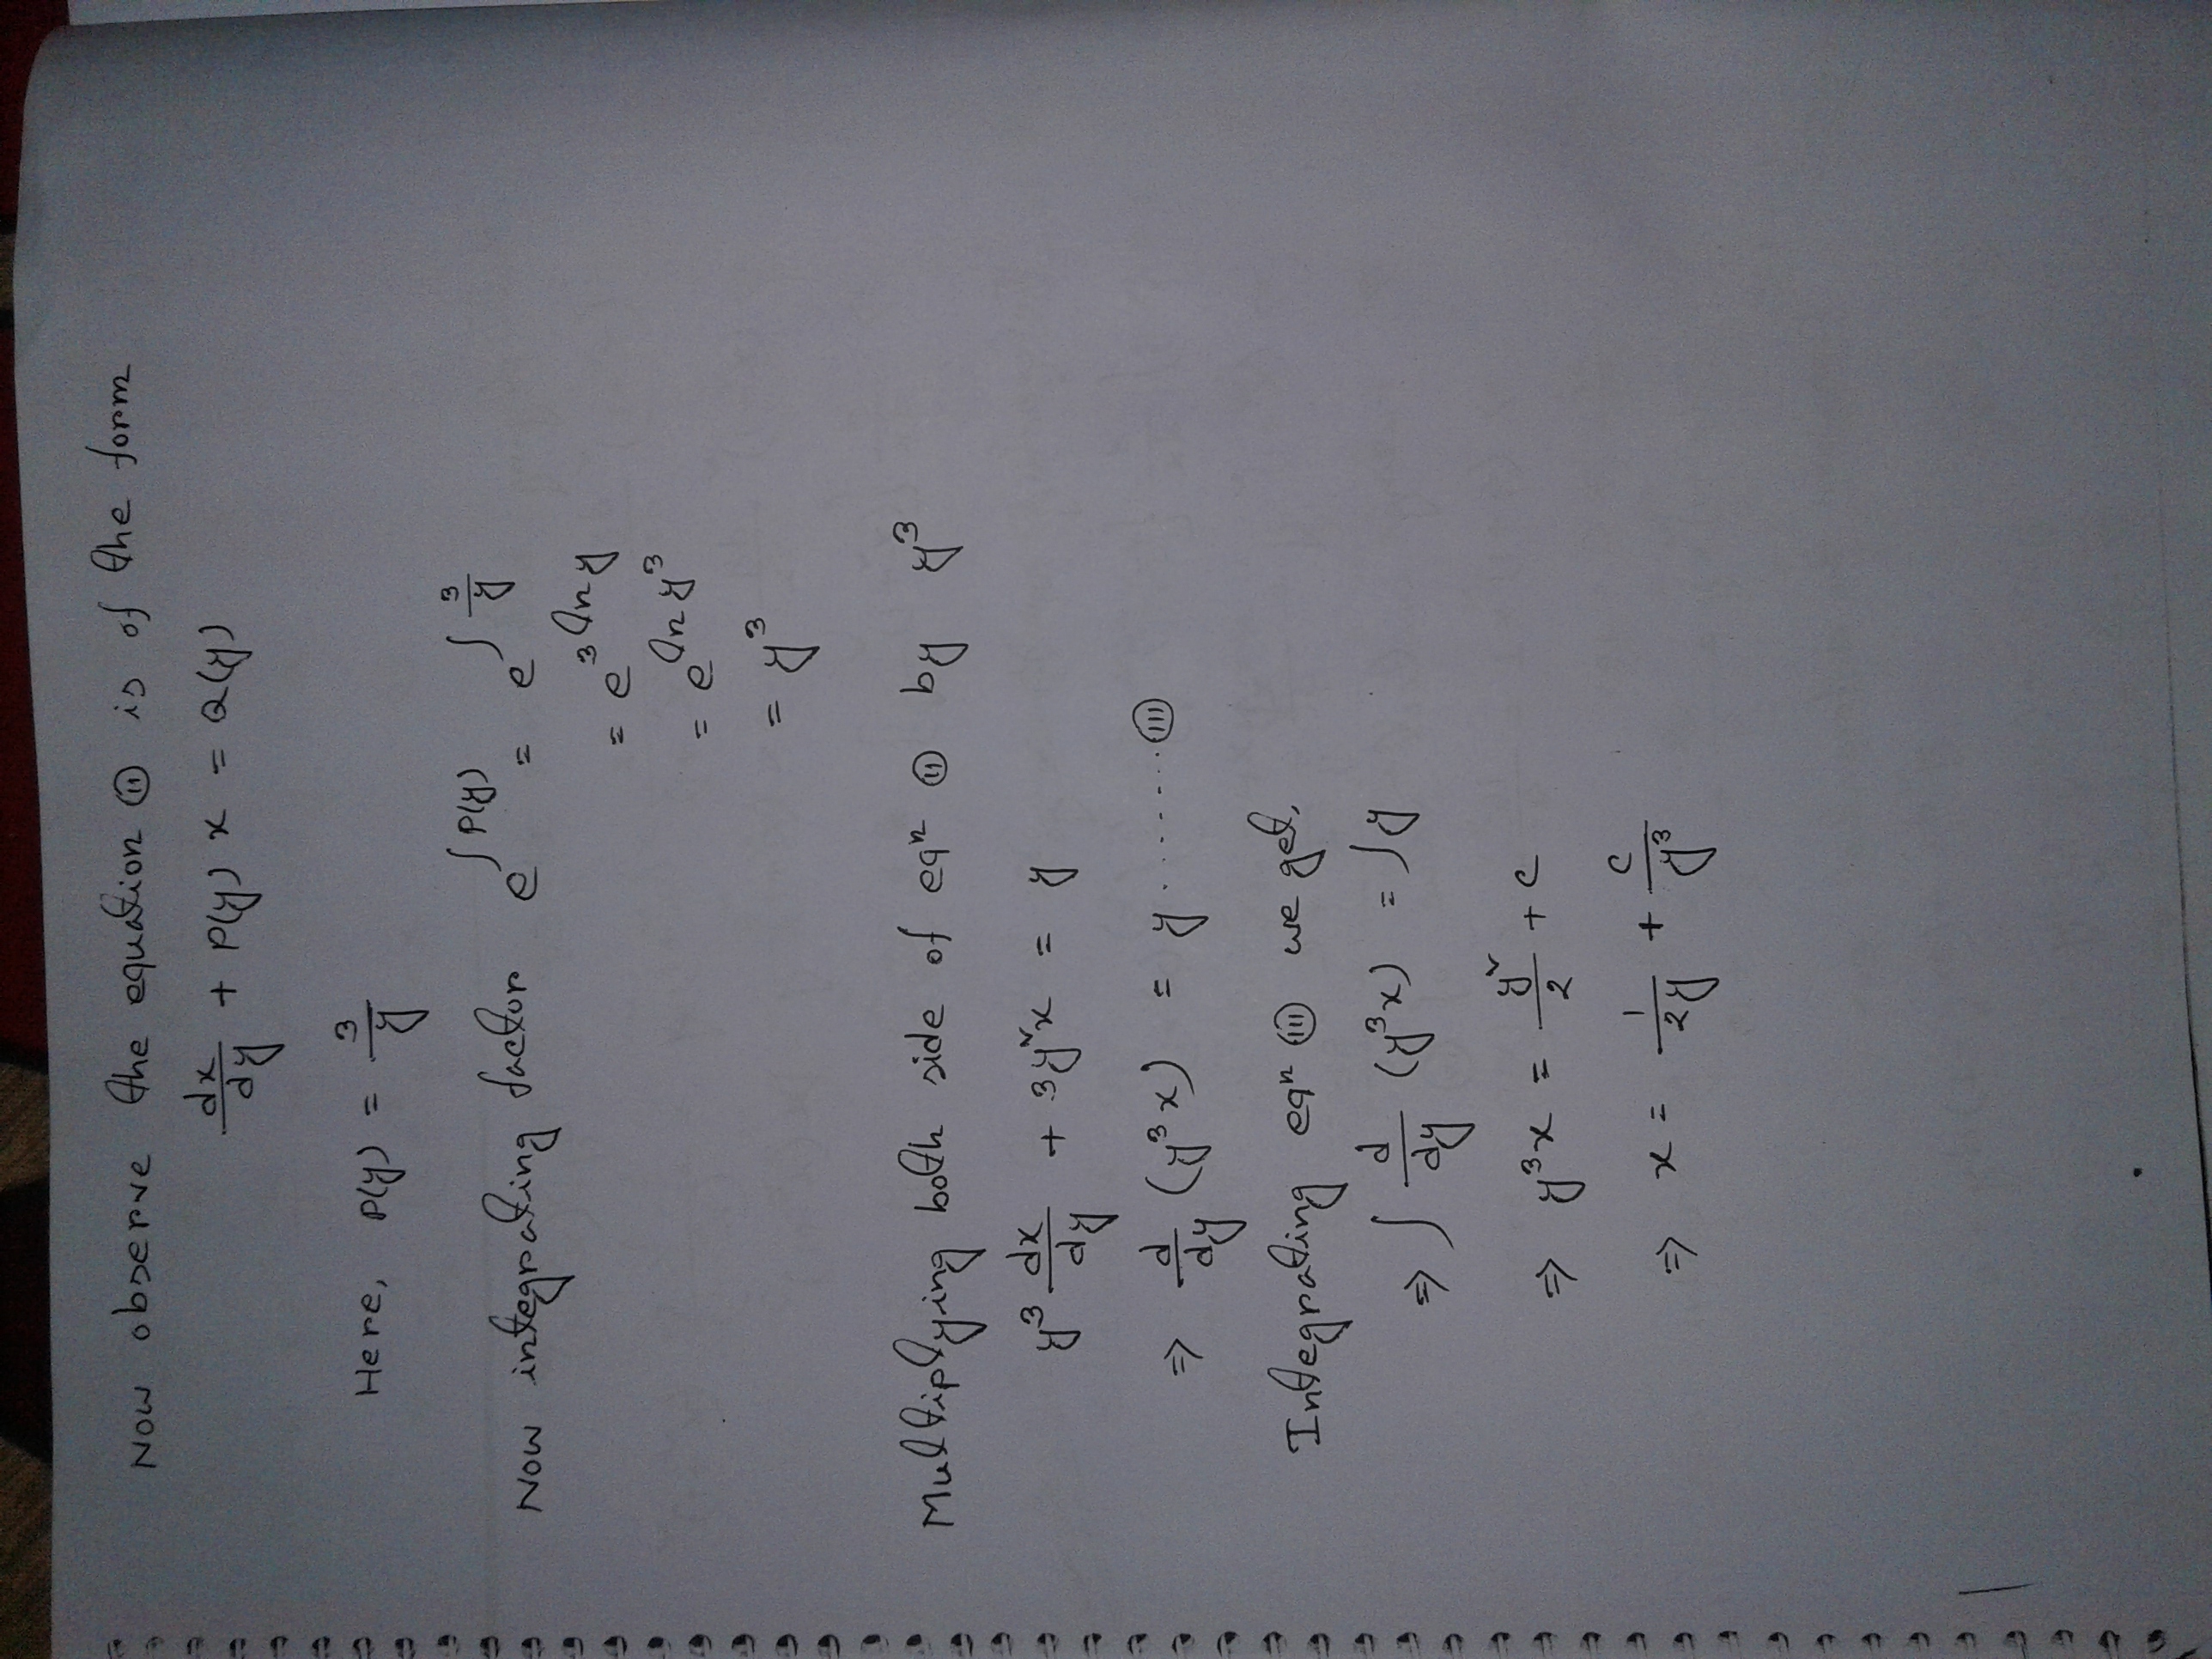 Now observe the equation (ii) is of the form
dx/dy + P(y) x = Q(y)
Here, P(y) = 3/y
Now integrating factor e^∫P(y) = e^∫3/y
= e^3 ln y
= e^ln y³
= y³
Multiplying both side of eqⁿ (ii) by y³
y³ dx/dy + 3y²x = y
⇒ d/dy (y³x) = y ........(iii)
Integrating eqⁿ (iii) we get,
⇒ ∫ d/dy (y³x) = ∫y
⇒ y³x = y²/2 + c
⇒ x = 1/2y + c/y³